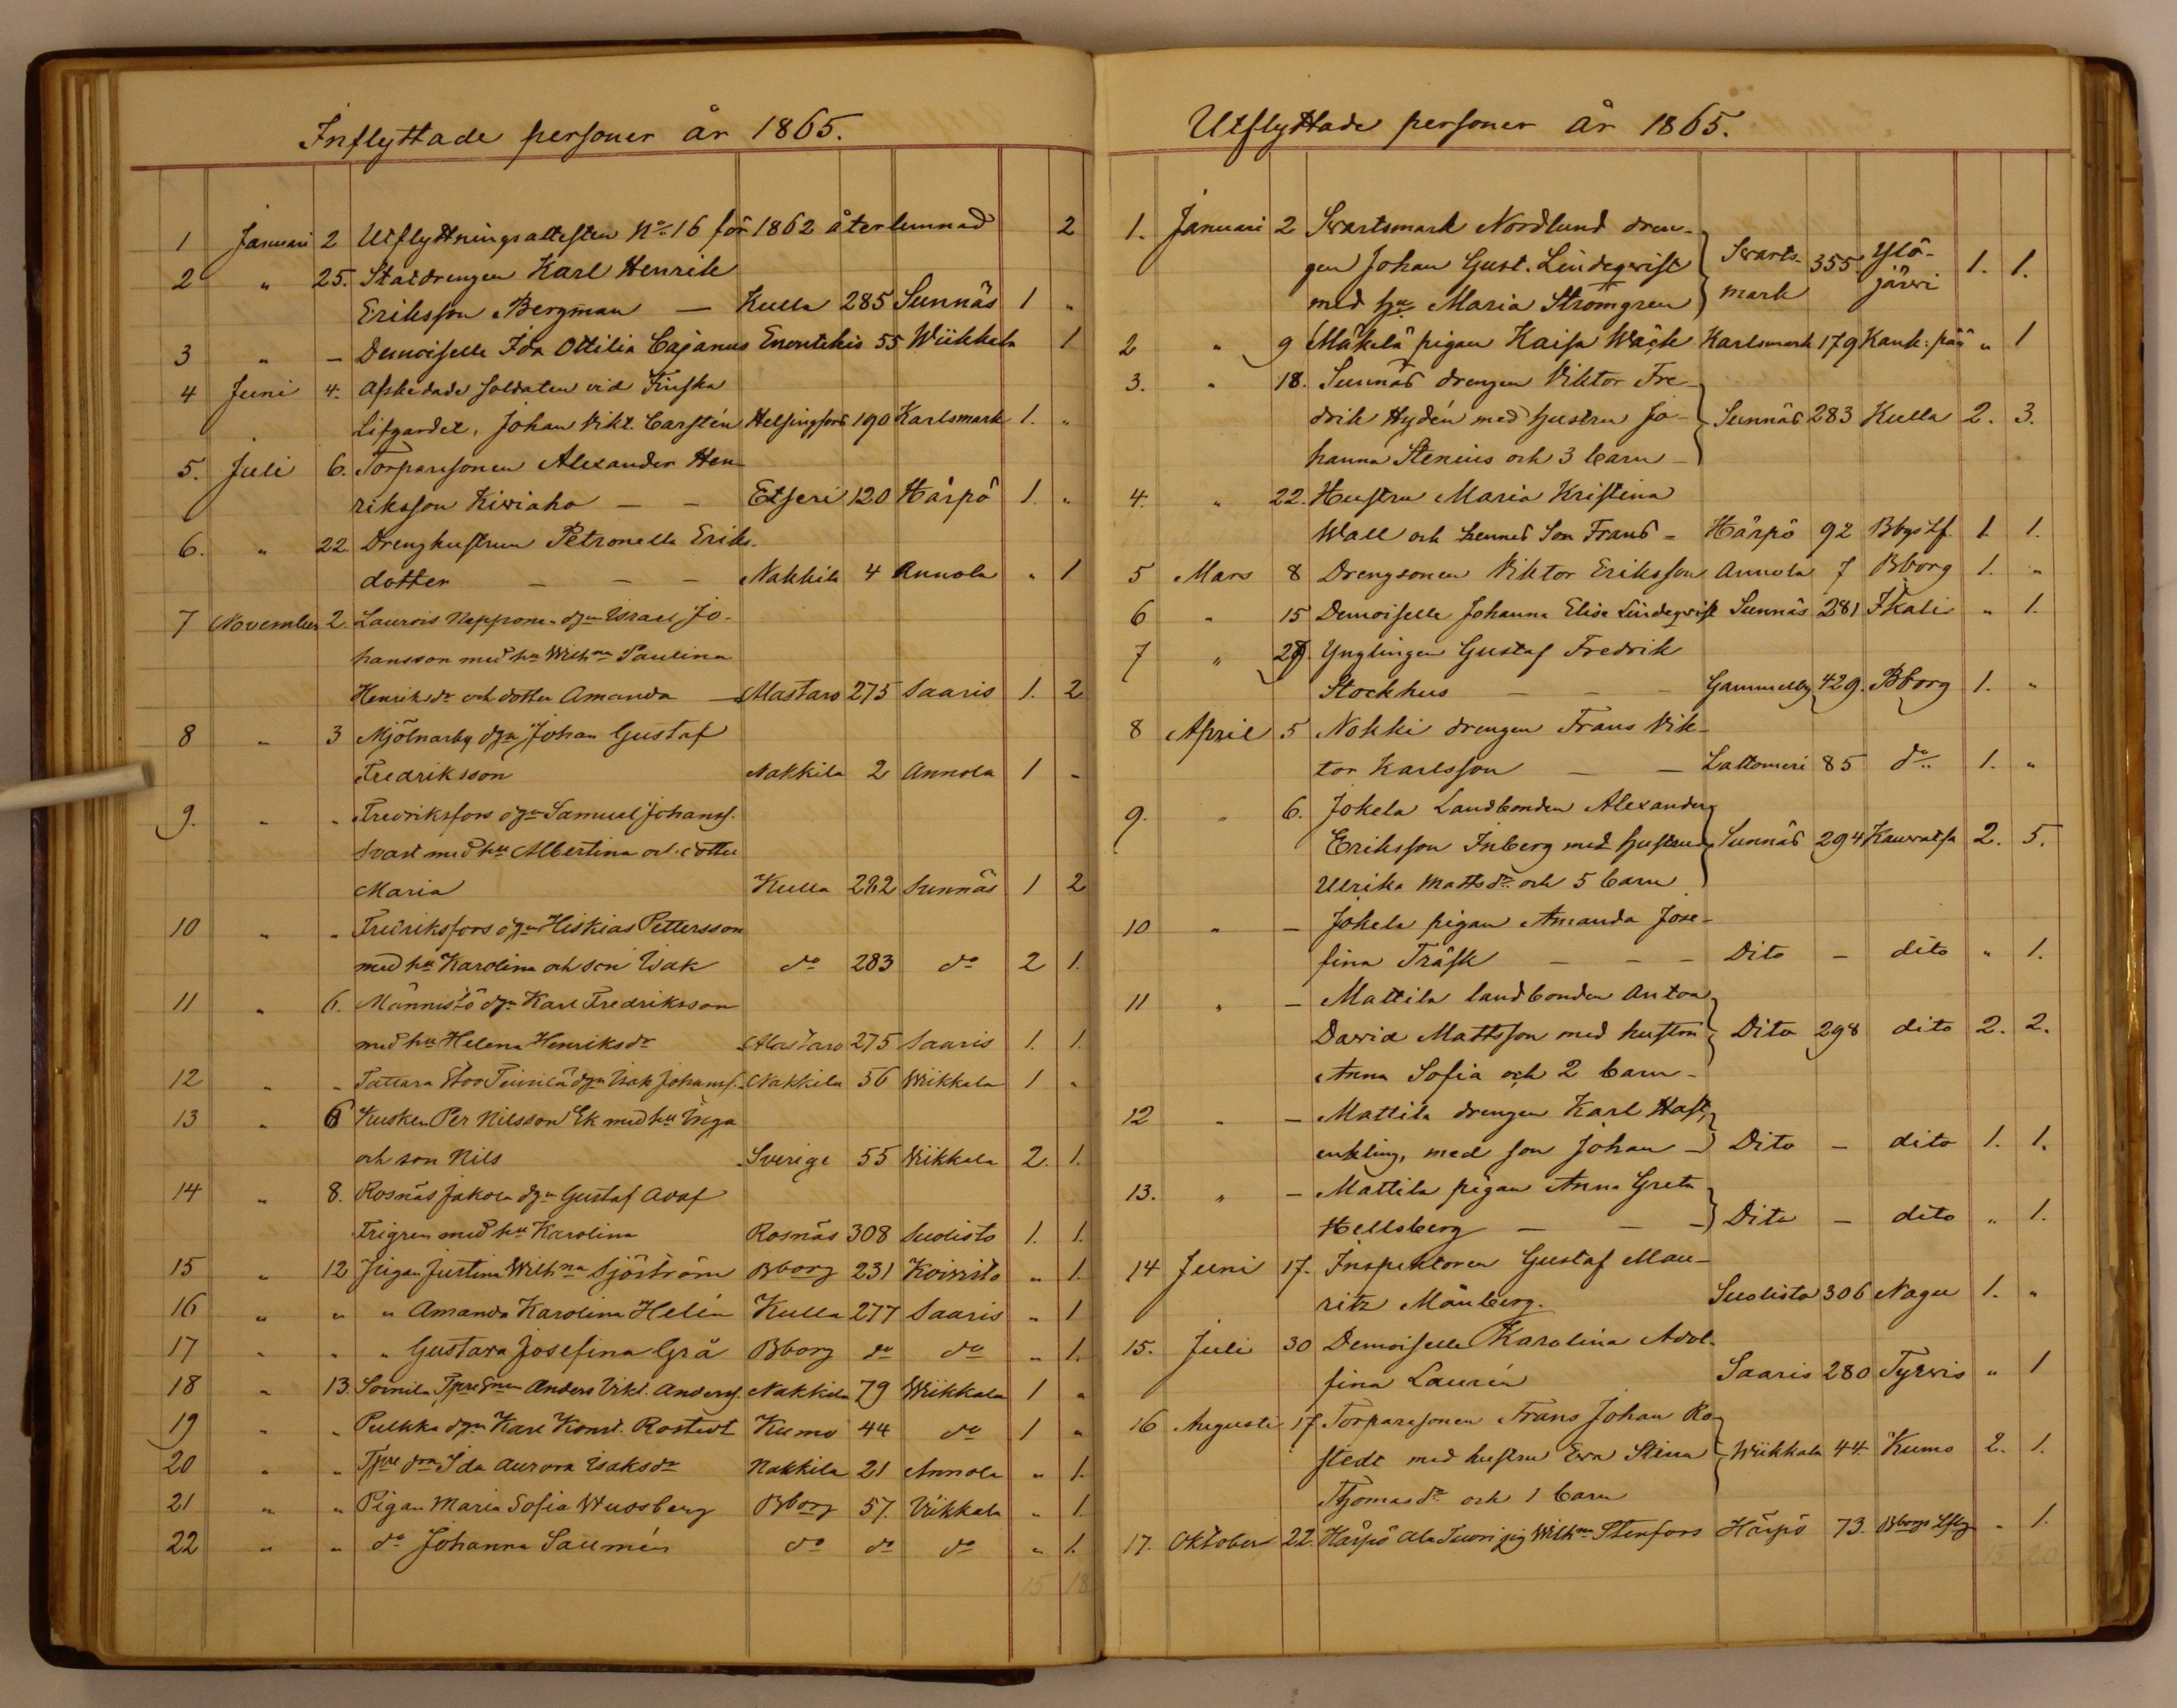 Inflyttade personer år 1865.
1 Januari 2 Utflyttningsattesten No. 16 för 1862 återlemnad 2
2 " 25. Statdrengen Karl Henrik
Eriksson Bergman — Kulla 285 Sunnäs 1 "
3 " — Demoiselle Ida Ottilia Cajanus Enontekis 55 Wiikkala 1
4 Juni 4. Afskedade soldaten vid Finska
Lifgardet, Johan Vikt. Carstén Helsingfors 190 Karlsmark 1. "
5. Juli 6. Torparesonen Alexander Hen-
riksson Kiviaho — — Etseri 120 Härpö 1. "
6. " 22. Drenghustrun Petronella Eriks-
dotter — — — Nakkila 4 Annola " 1
7 November 2. Laurois Neppone dgn Israel Jo-
hansson med hu Wilhna Paulina
Henriksdr och dotter Amanda — Mastaro 275 Saaris 1. 2
8 " 3 Mjölnarby dgn Johan Gustaf
Fredriksson Nakkila 2 Annola 1 "
9. " " Fredriksfors dgn Samuel Johanss.
Svart med hu Albertina och dotter
Maria Kulla 282 Sunnäs 1 2
10 " " Fredriksfors dgn Hiskias Pettersson
med hu Karolina och son Isak do 283 do 2 1.
11 " 6. Männistö dgn Karl Fredriksson
med hu Helena Henriksdr Mastaro 275 Saaris 1. 1.
12 " " Tattara Stor Teinilä dgn Isak Johanss. Nakkila 56 Wiikkala 1 "
13 " 6 Kusken Per Nilsson Ek med hu Inga
och son Nils Sverige 55 Wiikkala 2. 1.
14 " 8. Rosnäs Jakola dgn Gustaf Adaf
Frigren med hu Karolina Rosnäs 308 Suolisto 1. 1.
15 " 12 Pigan Justina Wilhna Sjöström Bborg 231 Koivisto " 1.
16 " " " Amanda Karolina Helén Kulla 277 Saaris " 1
17 " " " Gustava Josefina Grå Bborg do do " 1.
18 " 13. Soinila Tpresnen Anders Vikt. Anderss. Nakkila 79 Wiikkala 1 "
19 " " Pulkka dgn Karl Konst. Rostedt Kumo 44 do 1 "
20 " " Tpre dra Ida Aurora Isaksdr Nakkila 21 Annola " 1.
21 " " Pigan Maria Sofia Wuosberg Bborg 57. Viikkala " 1.
22 " " do Johanna Salmén do do do " 1.
15 18
Utflyttade personer år 1865.
1. Januari 2 Svartsmark Nordlund dren-
gen Johan Gust. Lindeqvist Svarts- 355 Ylö- 1. 1.
med hu Maria Strömgren mark järvi
2 " 9 Mäkelä pigan Kaisa Wäck Karlsmark 179 Kank:pää " 1
3. " 18. Sunnäs drengen Viktor Fre-
drik Hydén med hustru Jo- Sunnäs 283 Kulla 2. 3.
hanna Stenius och 3 barn —
4. " 22. Hustru Maria Kristina
Wall och hennes Son Frans — Härpö 92 Bbgs Lf. 1 1.
5 Mars 8 Drengsonen Viktor Eriksson Annola 7 Bborg 1. "
6 " 15 Demoiselle Johanna Elise Lindeqvist Sunnäs 281 Ikalis " 1.
7 " 27. Ynglingen Gustaf Fredrik
Stockhus — — — Gammelby 429. Bborg 1. "
8 April 5 Nokki drengen Frans Vik-
tor Karlsson — — Lattomeri 85 do 1. "
9. " 6. Jokela Landbonden Alexander
Eriksson Inberg med hustru Sunnäs 294 Kauvatsa 2. 5.
Ulrika Mattsdr och 5 barn
10 " — Jokela pigan Amanda Jose-
fina Träsk — — — Dito — dito " 1.
11 " — Mattila landbonden Anton
David Mattsson med hustru Dito 298 dito 2. 2.
Anna Sofia och 2 barn —
12 " — Mattila drengen Karl Hast,
enkling, med son Johan — Dito — dito 1. 1.
13. " — Mattila pigan Anna Greta
Hellsberg — — — Dito — dito " 1.
14 Juni 17. Inspektoren Gustaf Mau-
ritz Månberg. Suolisto 306 Nagu 1. "
15. Juli 30 Demoiselle Karolina Adol-
fina Laurén Saaris 280 Tyrvis " 1
16 Augusti 17. Torparesonen Frans Johan Ro-
stedt med hustru Eva Stina Wiikkala 44. Kumo 2. 1.
Thomasdr och 1 barn
17. Oktober 22. Härpö Ala Tuori pig Wilhna Stenfors Härpö 73. Bborgs Lfg " 1.
15 20